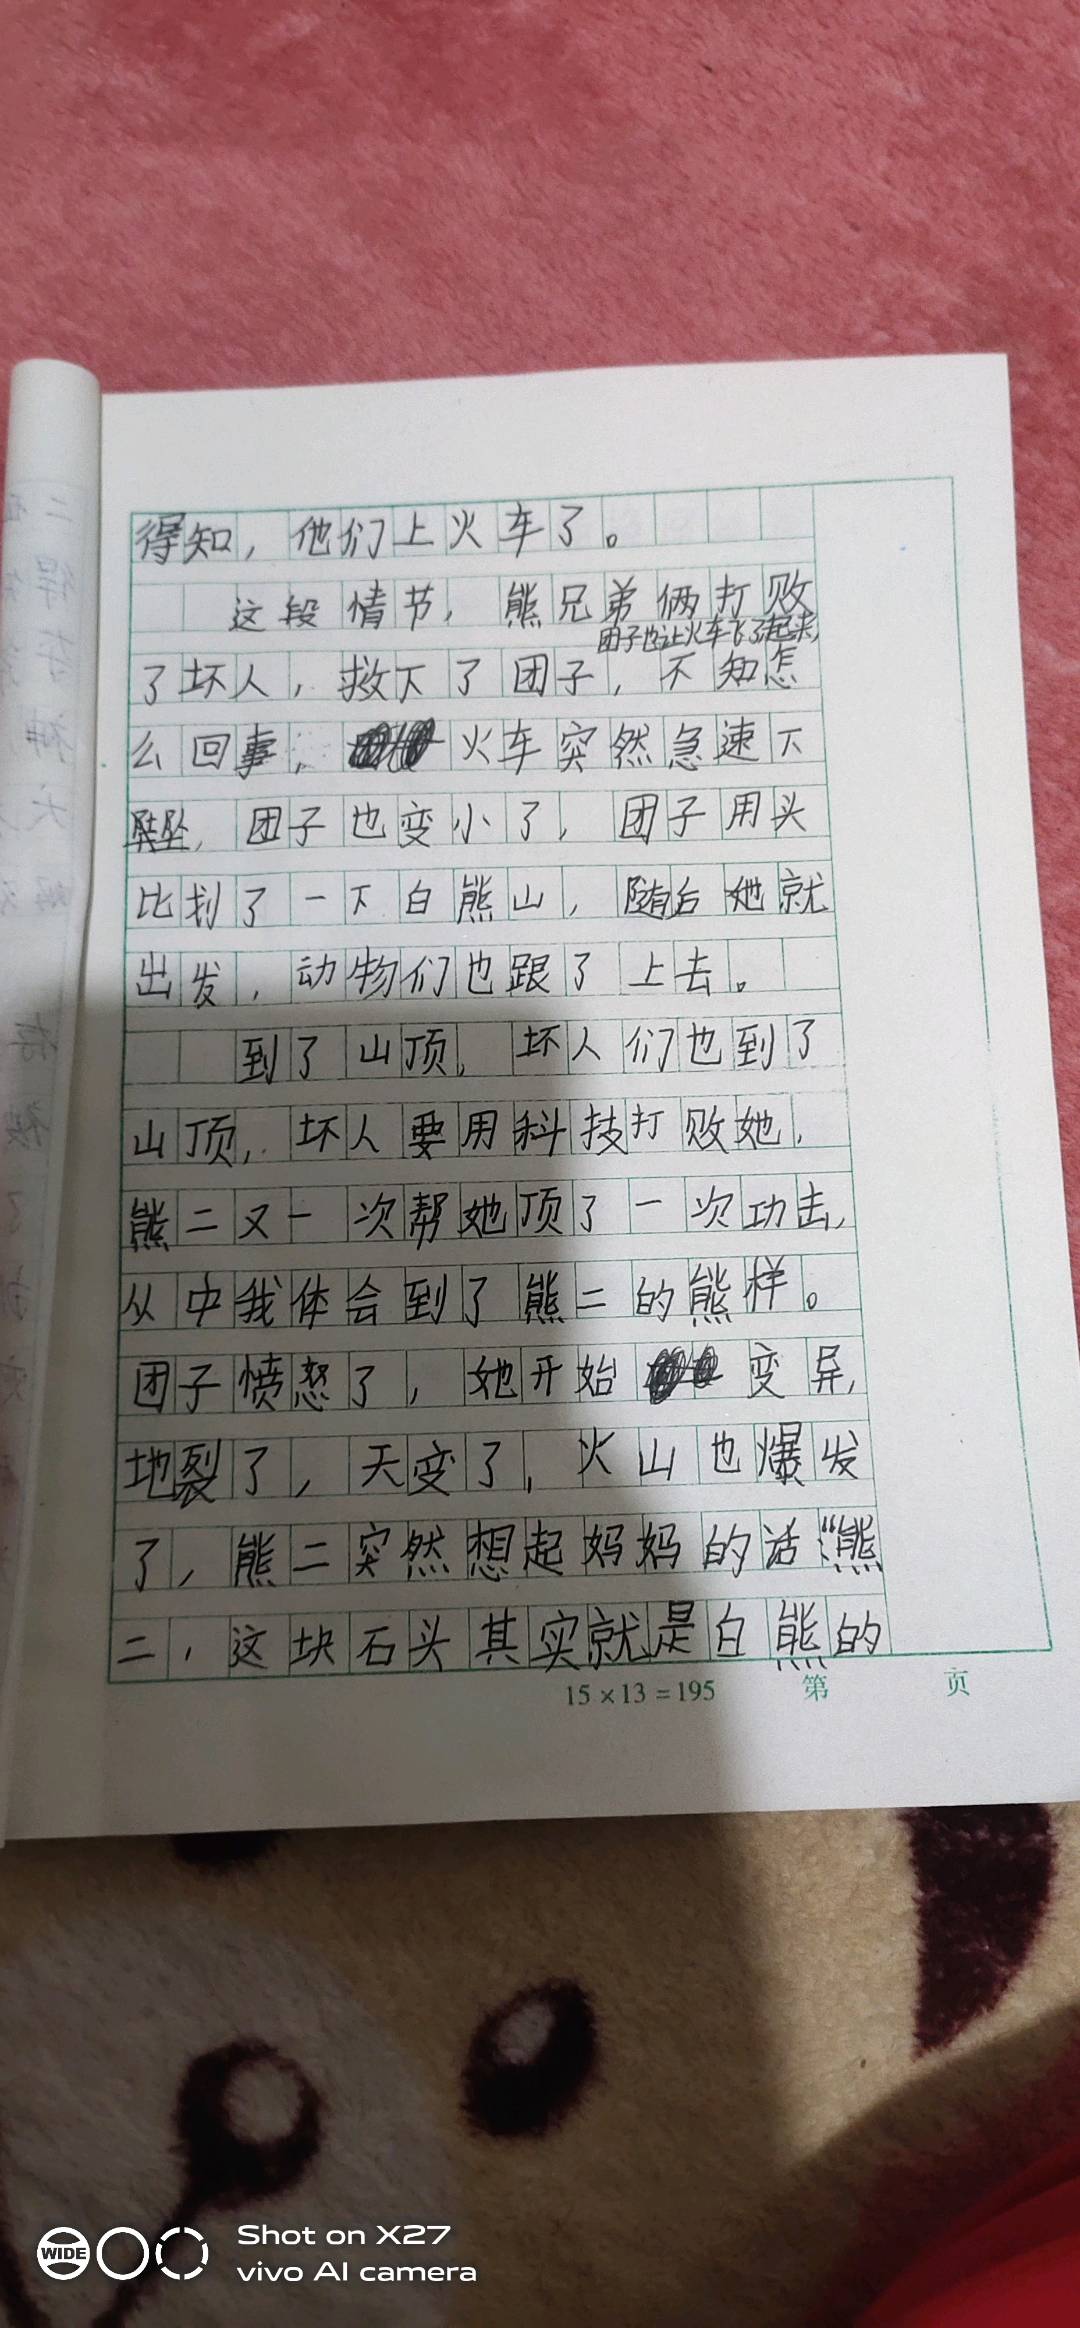 得知，他们上火车了。
这段情节，熊兄弟俩打败
团子也让火车飞了起来，
了坏人，救下了团子，不知怎
么回事，火车突然急速下
坠，团子也变小了，团子用头
比划了一下白熊山，随后她就
出发，动物们也跟了上去。
到了山顶，坏人们也到了
山顶，坏人要用科技打败她，
熊二又一次帮她顶了一次功击，
从中我体会到了熊二的熊样。
团子愤怒了，她开始变异，
地裂了，天变了，火山也爆发
了，熊二突然想起妈妈的话：“熊
二，这块石头其实就是白熊的
15×13=195 第 页
WIDE
Shot on X27
vivo AI camera